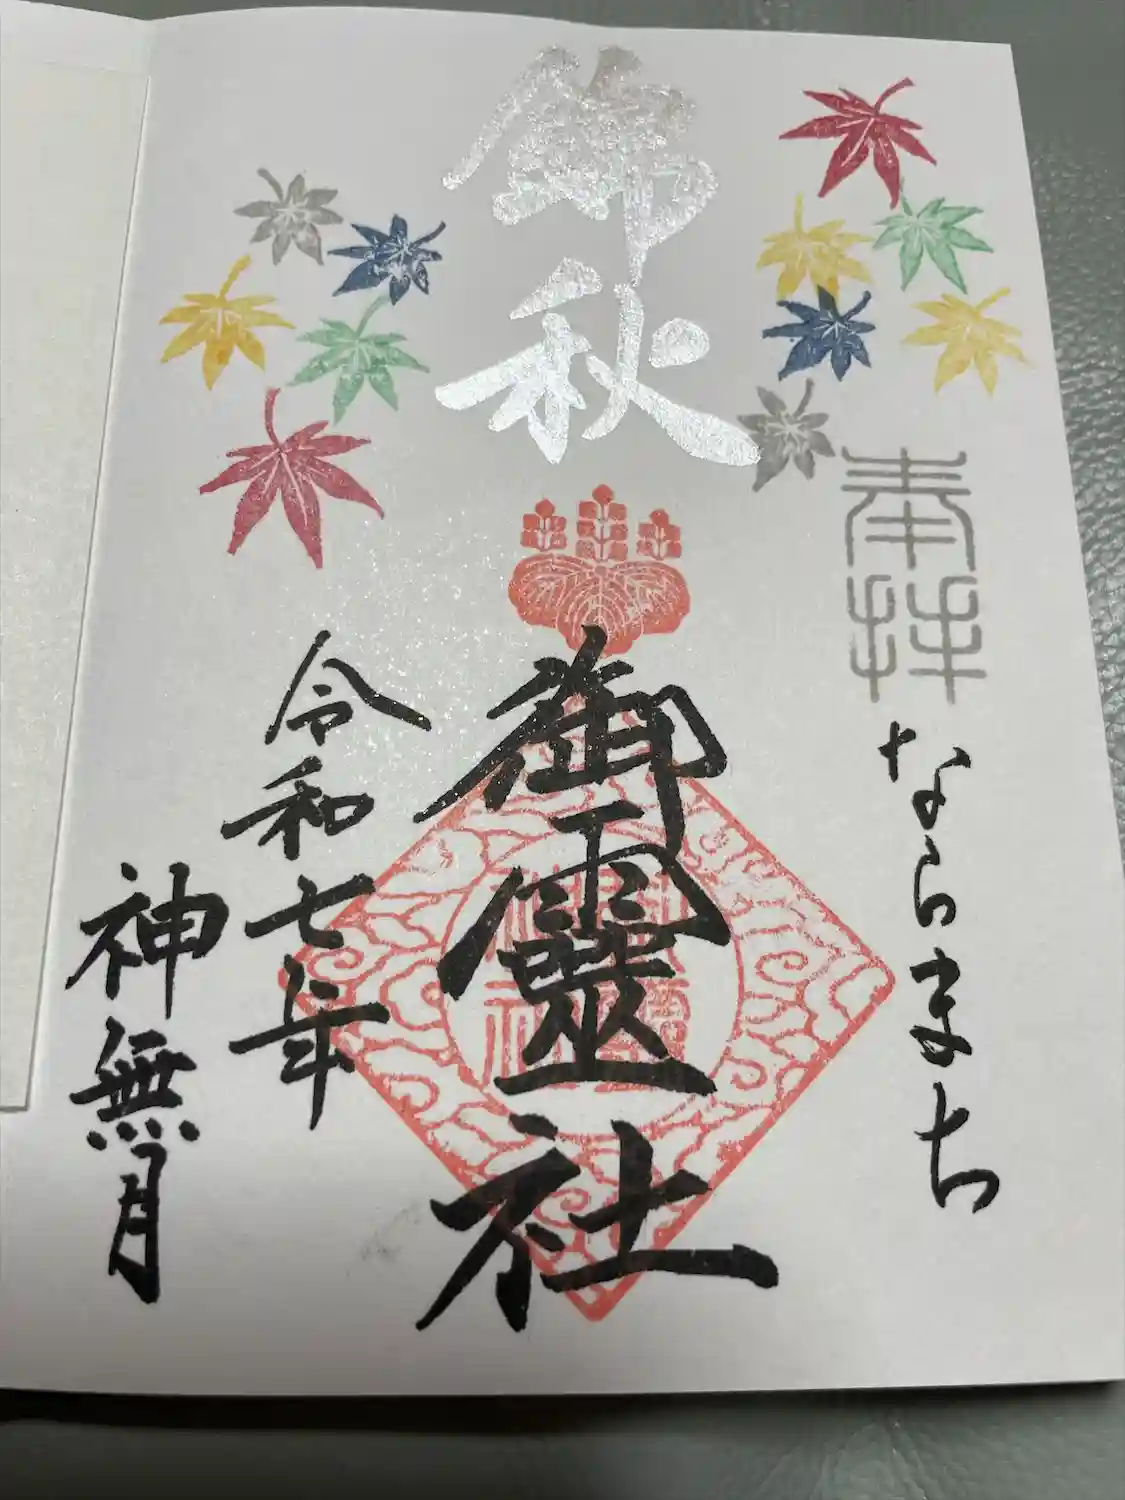 奉拝
ならまち
錦秋
御靈社
令和七年
神無月